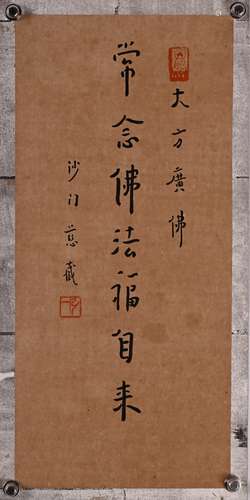 大方廣佛
常念佛法福自来
沙门